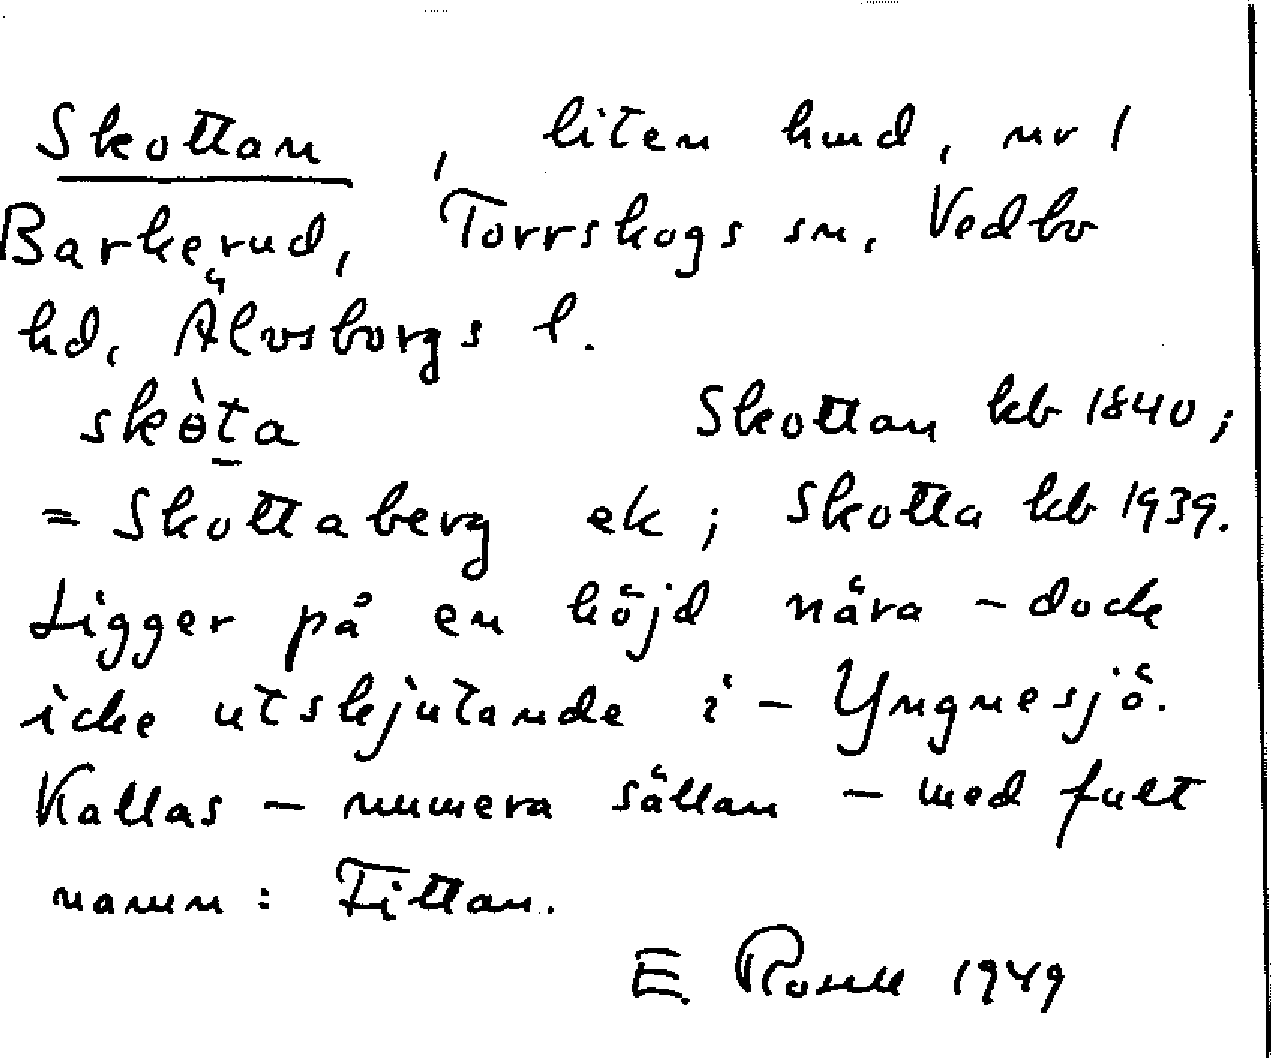 Skottan, liten hmd, nr 1
Barkerud, Torrskogs sn, Vedbo
hd, Älvsborgs l.
skòta Skottan kb 1840;
= Skottaberg ek; Skotta kb 1939.
Ligger på en höjd nära – dock
icke utskjutande i – Yngnesjö.
Kallas – numera sällan – med fult
namn: Fittan.
E 1949